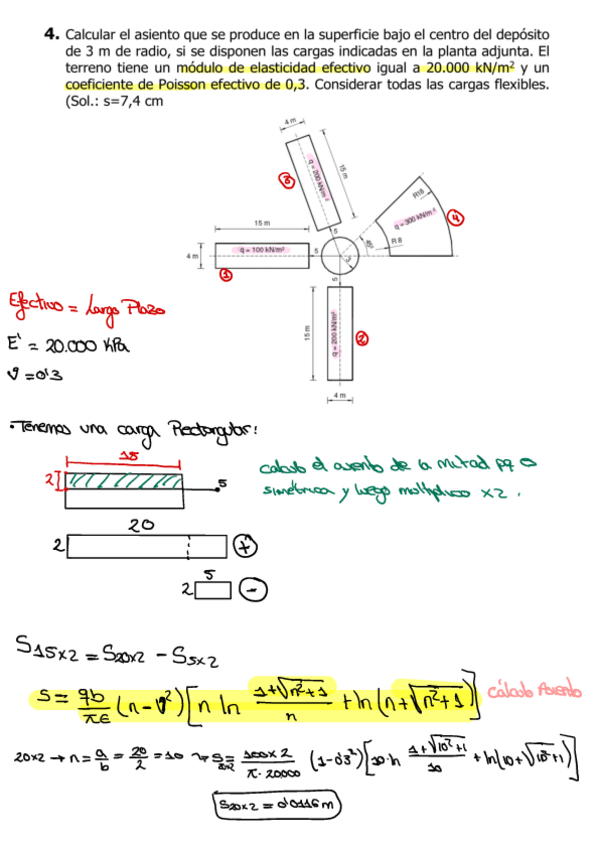 4. Calcular el asiento que se produce en la superficie bajo el centro del depósito
de 3 m de radio, si se disponen las cargas indicadas en la planta adjunta. El
terreno tiene un módulo de elasticidad efectivo igual a 20.000 kN/m² y un
coeficiente de Poisson efectivo de 0,3. Considerar todas las cargas flexibles.
(Sol.: s=7,4 cm
4 m
15 m
q = 200 kN/m²
3
R18
q = 300 kN/m²
4
15 m
5
45°
R 8
4 m
q = 100 kN/m²
5
3
1
5
15 m
q = 200 kN/m²
2
4 m
Efectivo = Largo Plazo
E' = 20.000 KPa
ν = 0'3
• Tenemos una carga Rectangular:
15
2
5
calculo el asiento de la mitad pq
simétrica y luego multiplico x2.
20
2
+
5
2
-
S15x2 = S20x2 - S5x2
s = qb/πE (1-ν²) [n ln (1+√(n²+1))/n + ln(n+√(n²+1))] cálculo Asiento
20x2 → n = a/b = 20/2 = 10 → S20x2 = 100x2/π·20000 (1-0'3²) [10·ln (1+√(10²+1))/10 + ln(10+√(10²+1))]
S20x2 = 0'0116 m